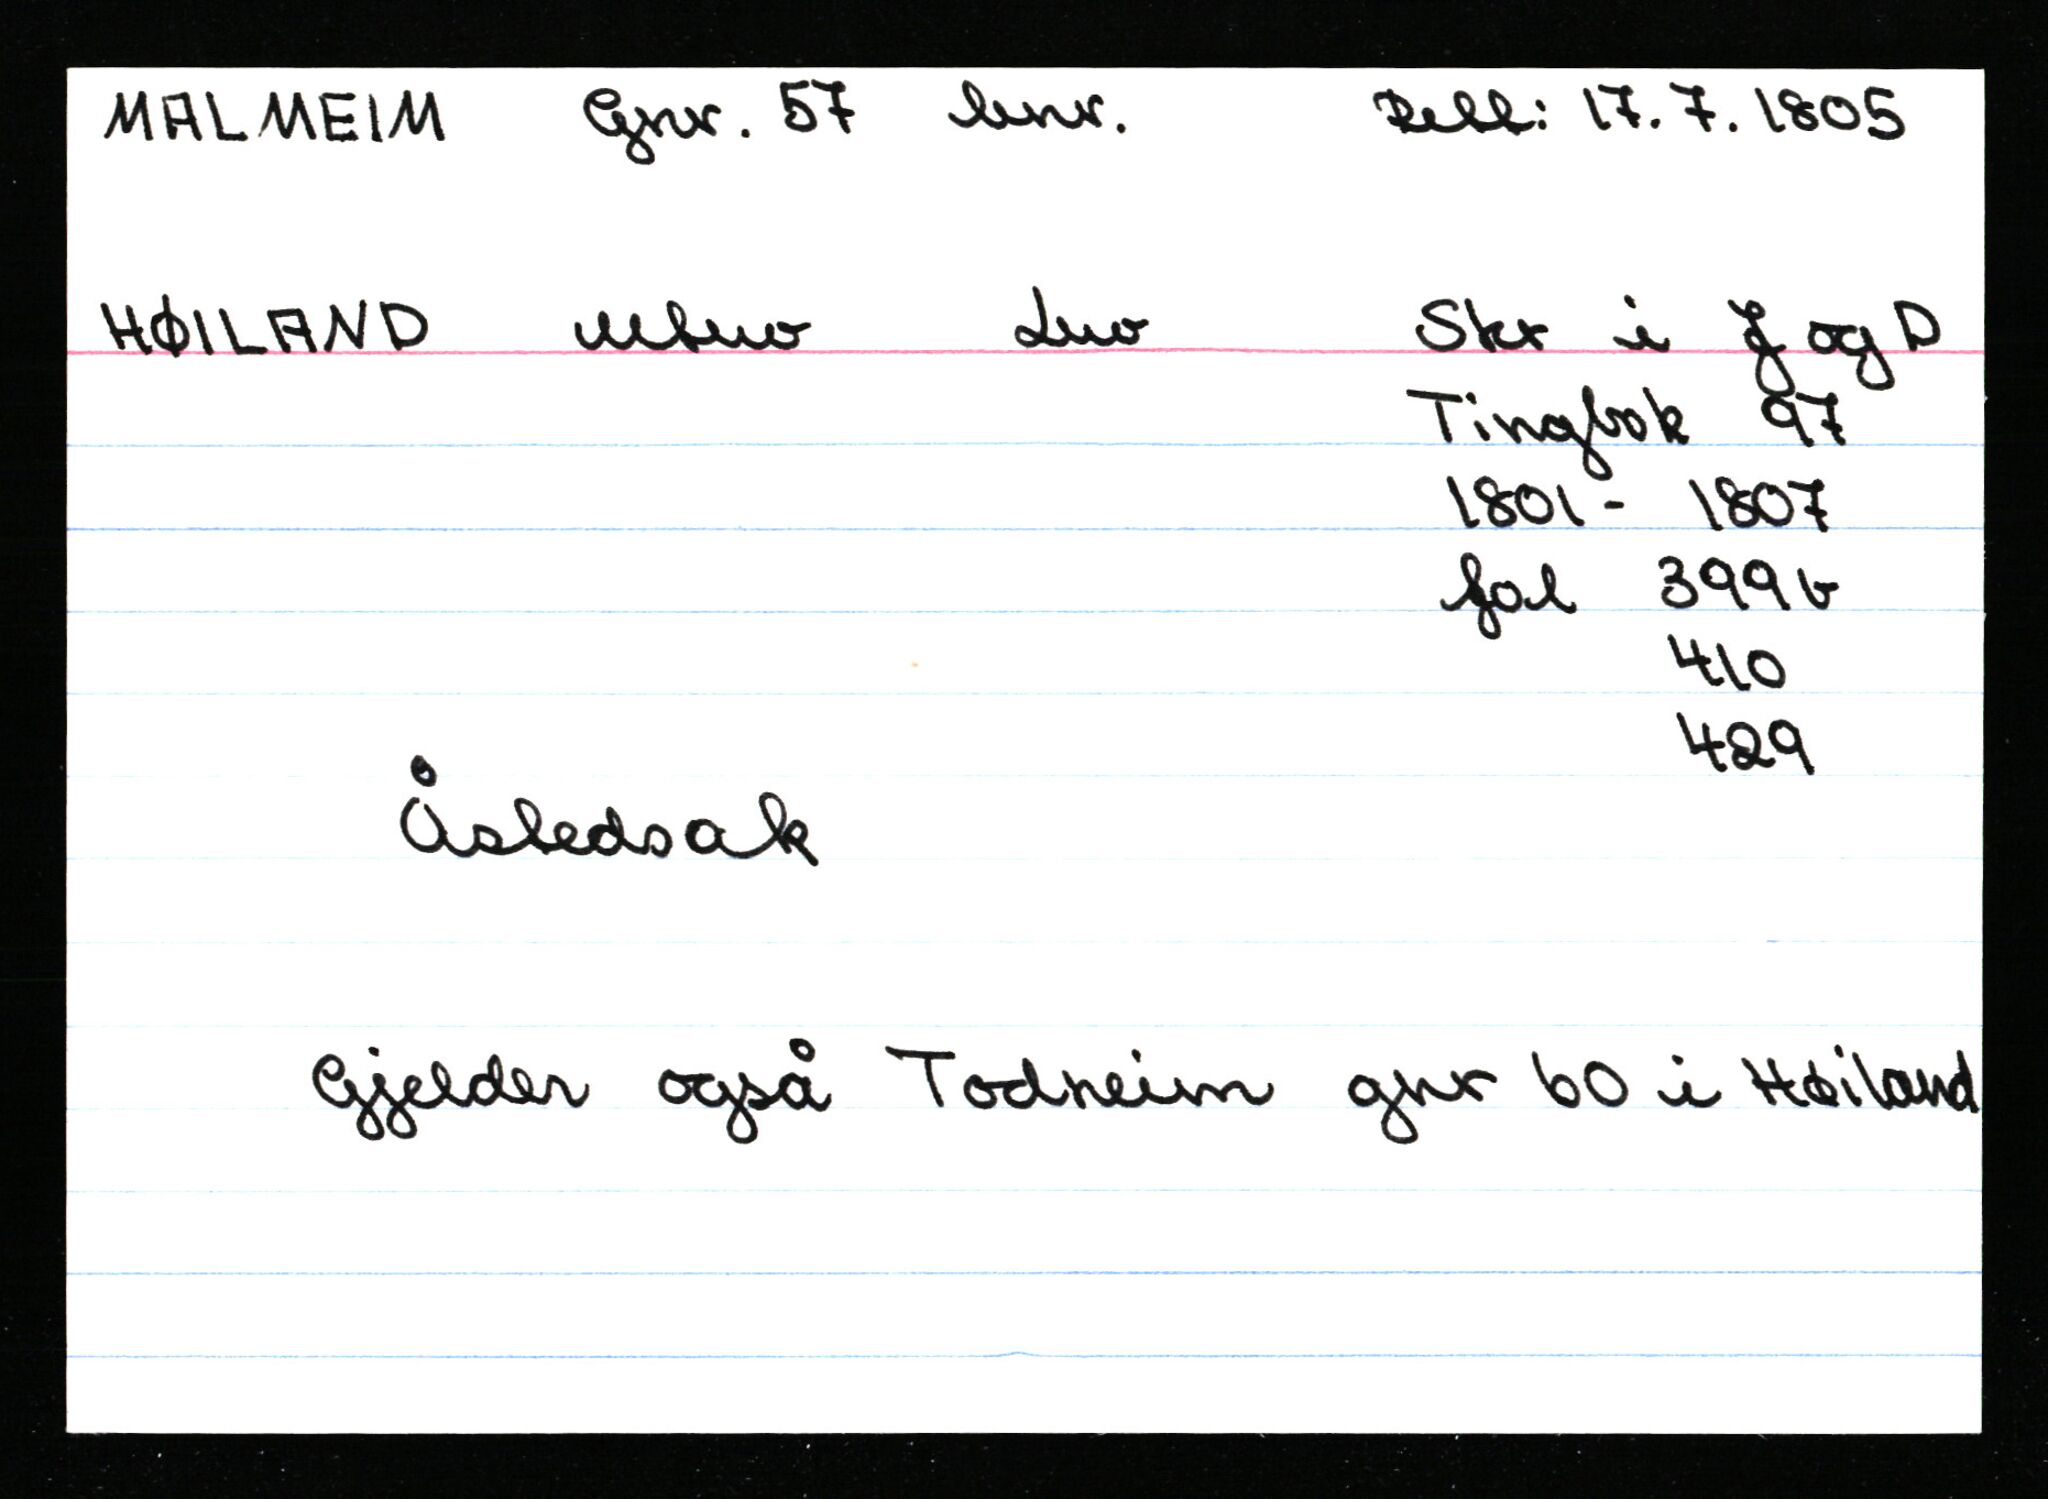 MALMEIM Gnr. 57 bnr. Rett: 17.7.1805
HØILAND Utmo Lnr Skr i J og D
Tingbok 97
1801 - 1807
fol 399b
410
429
Åstedsak
Gjelder også Todneim gnr 60 i Høiland